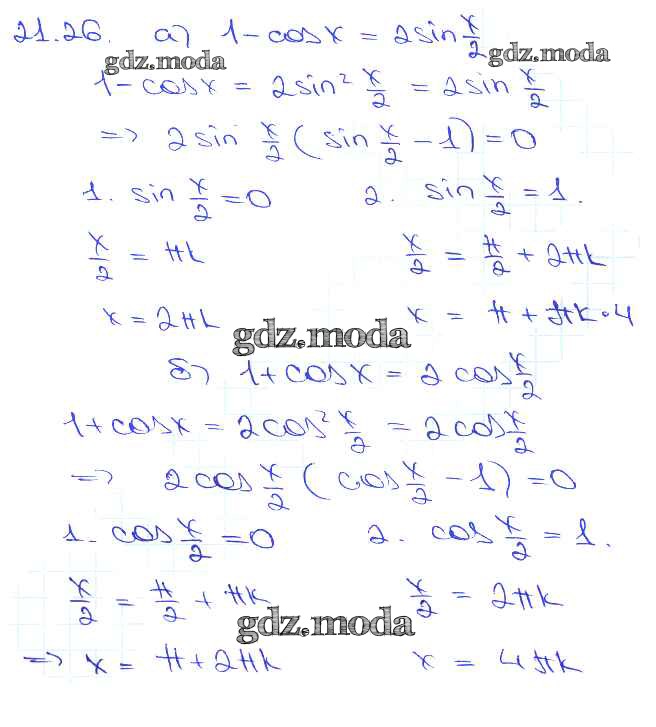 21.26. а) 1 - cosx = 2sin x/2
gdz.moda gdz.moda
1 - cosx = 2sin² x/2 = 2sin x/2
=> 2sin x/2 (sin x/2 - 1) = 0
1. sin x/2 = 0 2. sin x/2 = 1.
x/2 = πk x/2 = π/2 + 2πk
x = 2πk x = π + πk·4
gdz.moda
б) 1 + cosx = 2cos x/2
1 + cosx = 2cos² x/2 = 2cos x/2
=> 2cos x/2 (cos x/2 - 1) = 0
1. cos x/2 = 0 2. cos x/2 = 1.
x/2 = π/2 + πk x/2 = 2πk
gdz.moda
=> x = π + 2πk x = 4πk